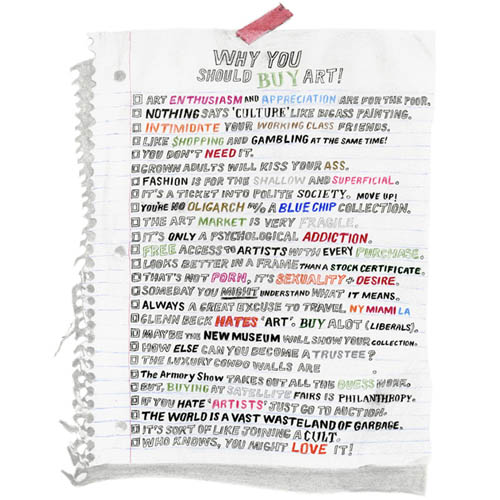 WHY YOU
SHOULD BUY ART!
ART ENTHUSIASM AND APPRECIATION ARE FOR THE POOR.
NOTHING SAYS 'CULTURE' LIKE BIGASS PAINTING.
INTIMIDATE YOUR WORKING CLASS FRIENDS.
LIKE $HOPPING AND GAMBLING AT THE SAME TIME!
YOU DON'T NEED IT.
GROWN ADULTS WILL KISS YOUR ASS.
FASHION IS FOR THE SHALLOW AND SUPERFICIAL.
IT'S A TICKET INTO POLITE SOCIETY. MOVE UP!
YOU'RE NO OLIGARCH W/O A BLUE CHIP COLLECTION.
THE ART MARKET IS VERY FRAGILE.
IT'S ONLY A PSYCHOLOGICAL ADDICTION.
FREE ACCESS TO ARTISTS WITH EVERY PURCHASE.
LOOKS BETTER IN A FRAME THAN A STOCK CERTIFICATE.
THAT'S NOT PORN, IT'S SEXUALITY + DESIRE.
SOMEDAY YOU MIGHT UNDERSTAND WHAT IT MEANS.
ALWAYS A GREAT EXCUSE TO TRAVEL. NY MIAMI LA
GLENN BECK HATES 'ART'. BUY ALOT (LIBERALS).
MAYBE THE NEW MUSEUM WILL SHOW YOUR COLLECTION.
HOW ELSE CAN YOU BECOME A TRUSTEE?
THE LUXURY CONDO WALLS ARE
The Armory Show TAKES OUT ALL THE GUESS WORK.
BUT, BUYING AT SATELLITE FAIRS IS PHILANTHROPY.
IF YOU HATE 'ARTISTS' JUST GO TO AUCTION.
THE WORLD IS A VAST WASTELAND OF GARBAGE.
IT'S SORT OF LIKE JOINING A CULT.
WHO KNOWS, YOU MIGHT LOVE IT!